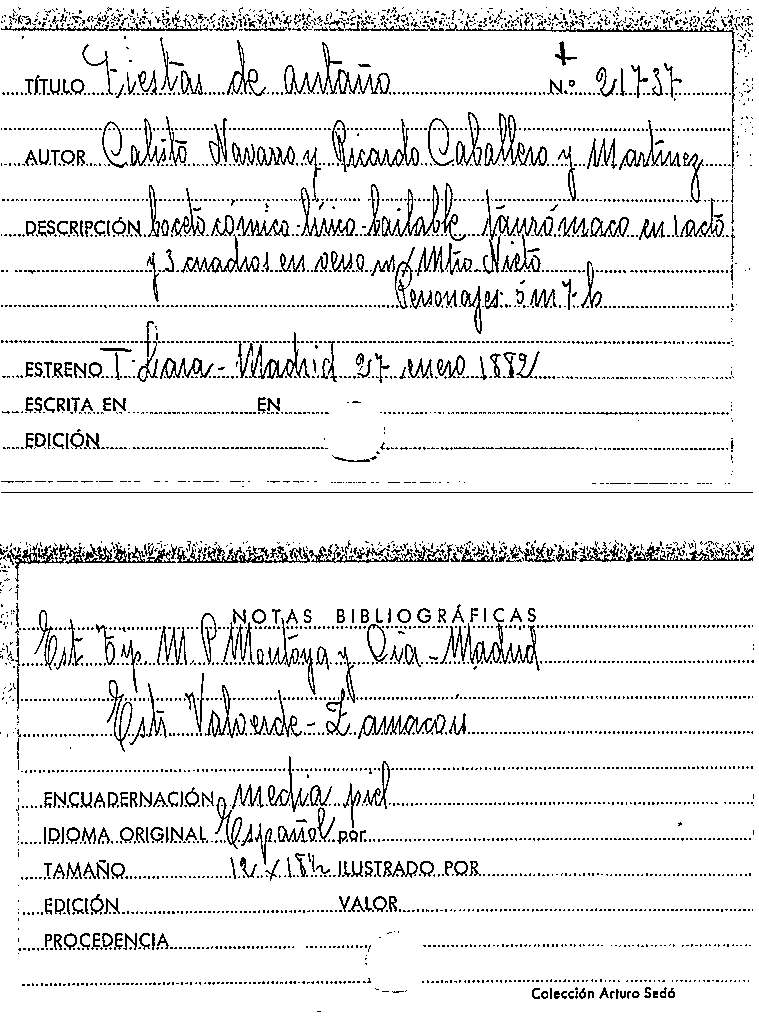 TÍTULO Fiestas de antaño N.º 21737
AUTOR Calisto Navarro y Ricardo Caballero y Martinez
DESCRIPCIÓN boceto cómico-lírico-bailable taurómaco en 1 acto
y 3 cuadros en verso m/ Mtro Nieto
Personajes: 5 m 7-h
ESTRENO T. Lara - Madrid 27 enero 1882
ESCRITA EN EN
EDICIÓN
NOTAS BIBLIOGRÁFICAS
Est. Tip. M. P. Montoya y Cía - Madrid
Estr Valverde - Zamacois
ENCUADERNACIÓN media piel
IDIOMA ORIGINAL Español por
TAMAÑO 12 x 18½ ILUSTRADO POR
EDICIÓN VALOR
PROCEDENCIA
Colección Arturo Sedó